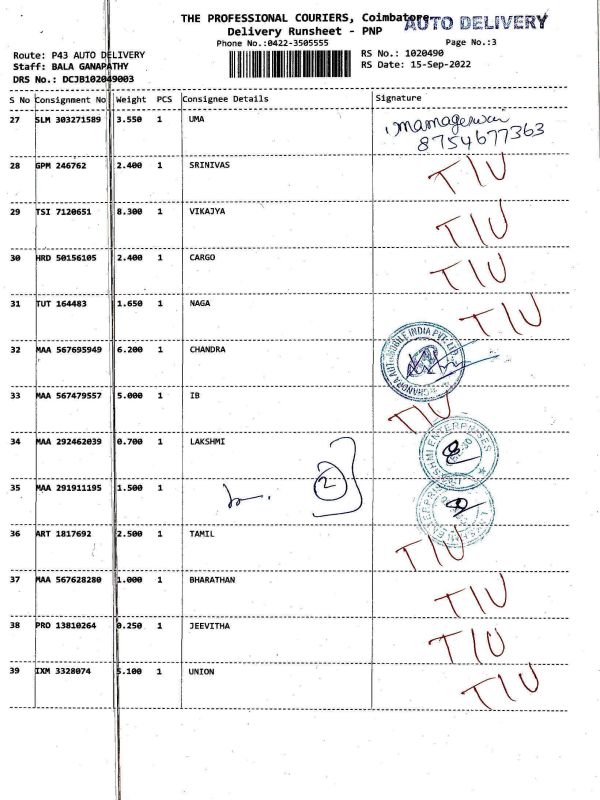 THE PROFESSIONAL COURIERS, Coimbatore
AUTO DELIVERY
Delivery Runsheet - PNP
Phone No.:0422-3505555 Page No.:3
Route: P43 AUTO DELIVERY RS No.: 1020490
Staff: BALA GANAPATHY RS Date: 15-Sep-2022
DRS No.: DCJB102049003
S No Consignment No Weight PCS Consignee Details Signature
27 SLM 303271589 3.550 1 UMA
8754677363
28 GPM 246762 2.400 1 SRINIVAS TIU
29 TSI 7120651 8.300 1 VIKAJYA TIU
30 HRD 50156105 2.400 1 CARGO TIU
31 TUT 164483 1.650 1 NAGA TIU
32 MAA 567695949 6.200 1 CHANDRA
33 MAA 567479557 5.000 1 IB TIU
34 MAA 292462039 0.700 1 LAKSHMI
2
35 MAA 291911195 1.500 1
36 ART 1817692 2.500 1 TAMIL TIU
37 MAA 567628280 1.000 1 BHARATHAN TIU
38 PRO 13810264 0.250 1 JEEVITHA TIU
39 IXM 3328074 5.100 1 UNION TIU